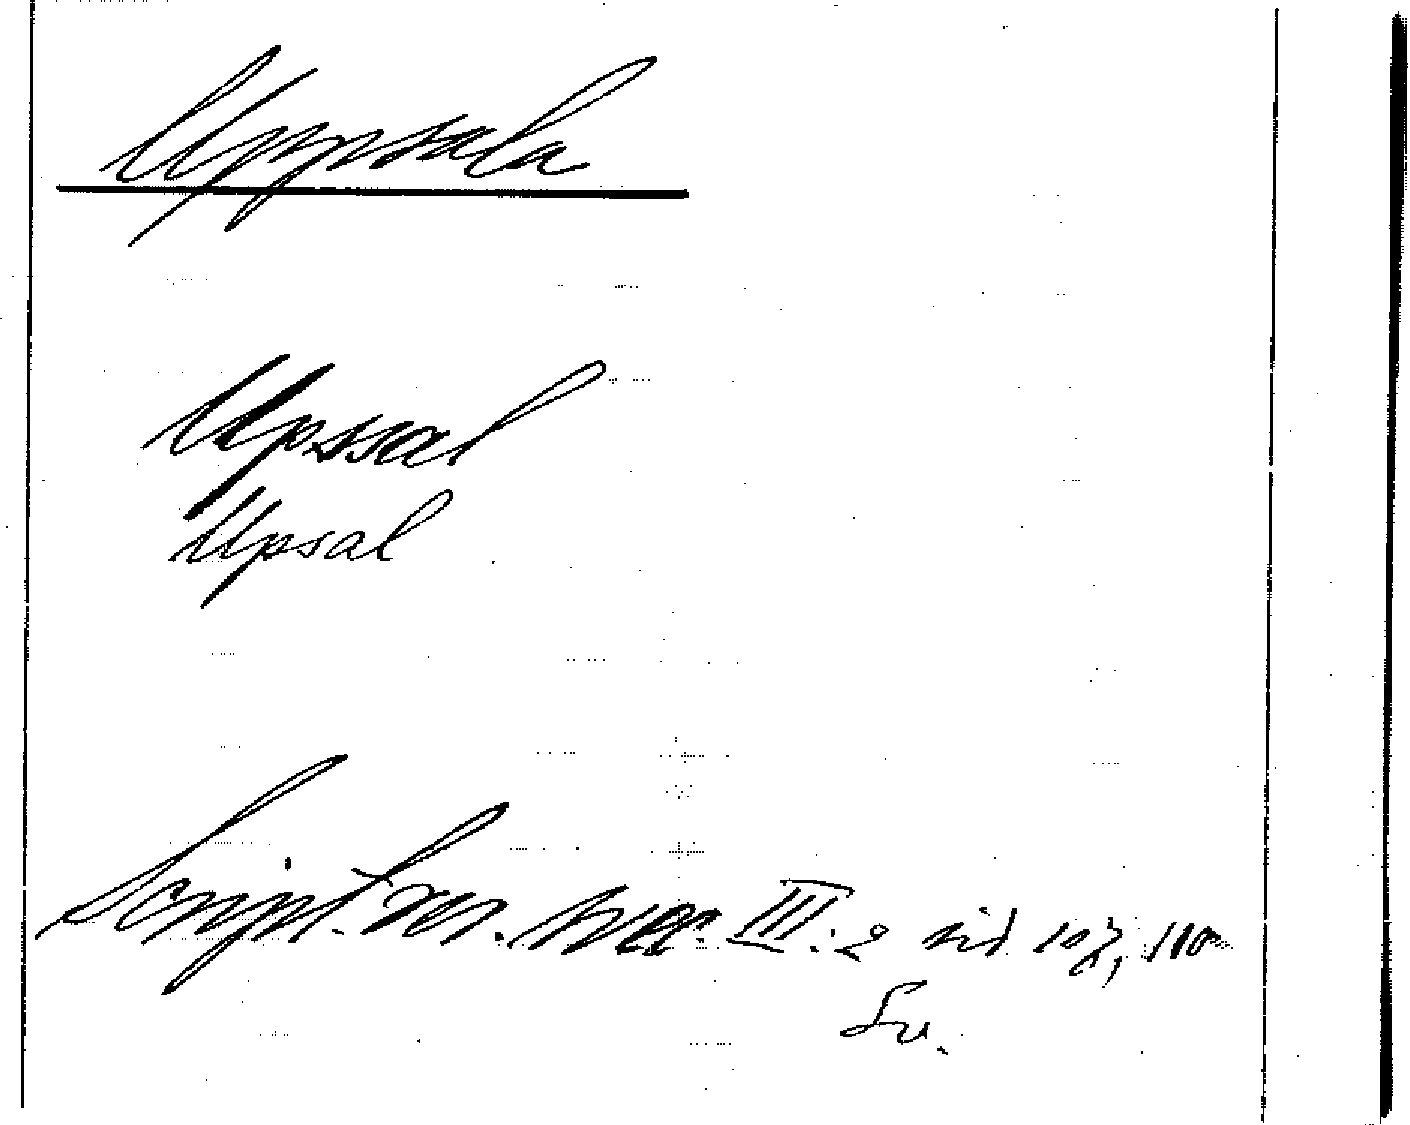 Uppsala
Upssal
Upsal
Script. rer. svec. III: 2 sid 107, 110
Lu.